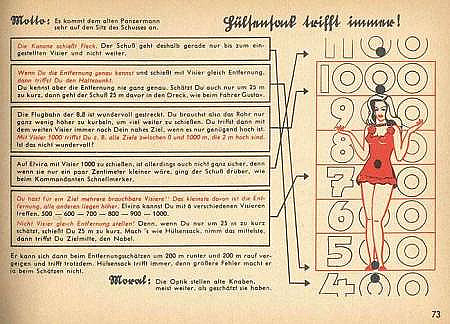 Motto: Es kommt dem alten Panzermann
sehr auf den Sitz des Schusses an.
Hülsensack trifft immer!
Die Kanone schießt Fleck. Der Schuß geht deshalb gerade nur bis zum ein-
gestellten Visier und nicht weiter.
Wenn Du die Entfernung genau kennst und schießt mit Visier gleich Entfernung,
dann triffst Du den Haltepunkt.
Du kennst aber die Entfernung nie ganz genau. Schätzt Du auch nur um 25 m
zu kurz, dann geht der Schuß 25 m davor in den Dreck, wie beim Fahrer Gustav.
Die Flugbahn der 8,8 ist wundervoll gestreckt. Du brauchst also das Rohr nur
ganz wenig höher zu kurbeln, um viel weiter zu schießen. Du triffst dann mit
dem weiten Visier immer noch Dein nahes Ziel, wenn es nur genügend hoch ist.
Mit Visier 1000 triffst Du z. B. alle Ziele zwischen 0 und 1000 m, die 2 m hoch sind.
Ist das nicht wundervoll?
Auf Elvira mit Visier 1000 zu schießen, ist allerdings auch nicht ganz sicher, denn
wenn sie nur ein paar Zentimeter kleiner wäre, ging der Schuß drüber, wie
beim Kommandanten Schnellmerker.
Du hast für ein Ziel mehrere brauchbare Visiere! Das kleinste davon ist die Ent-
fernung, alle anderen liegen höher. Elvira kannst Du mit 6 verschiedenen Visieren
treffen. 500 — 600 — 700 — 800 — 900 — 1000.
Nicht Visier gleich Entfernung stellen! Denn, wenn Du nur um 25 m zu kurz
schätzt, schießt Du 25 m zu kurz. Mach 's wie Hülsensack, nimm das mittelste,
dann triffst Du Zielmitte, den Nabel.
Er kann sich dann beim Entfernungschätzen um 200 m runter und 200 m rauf ver-
geigen und trifft trotzdem. Hülsensack trifft immer, denn größere Fehler macht er
ja beim Schätzen nicht.
Moral: Die Optik stellen alte Knaben,
meist weiter, als geschätzt sie haben.
1100
1000
900
800
700
600
500
400
73